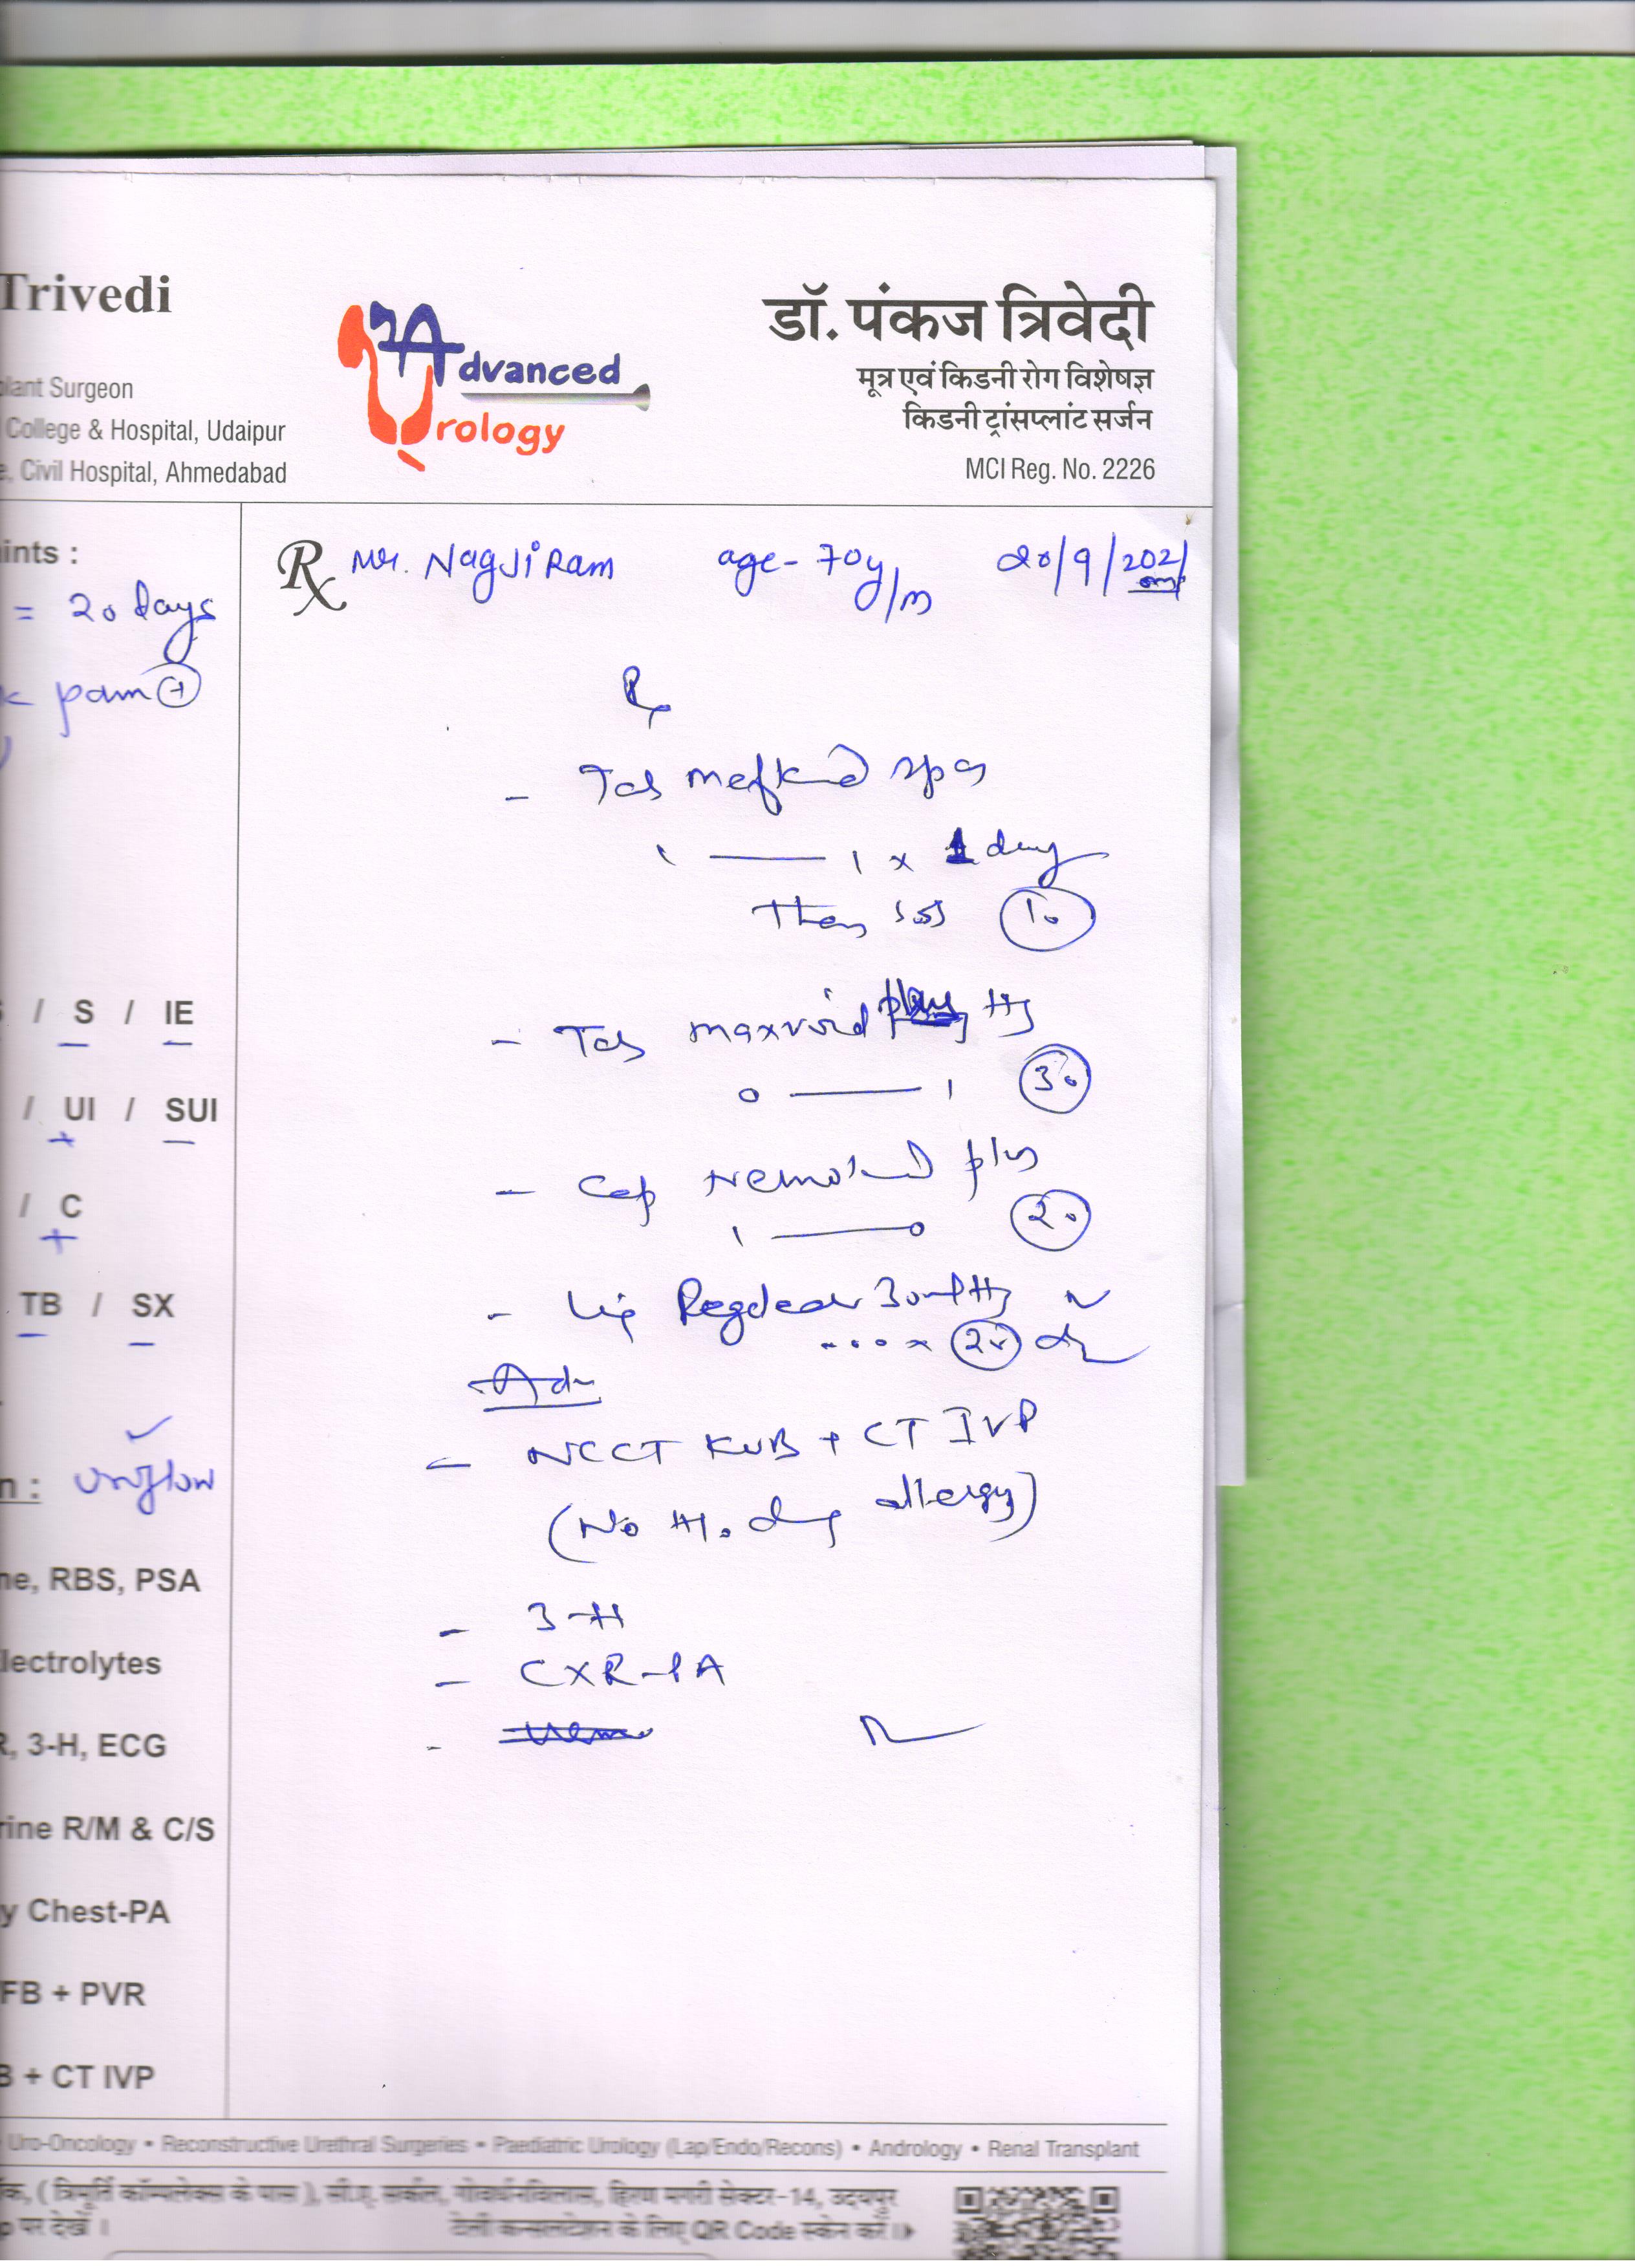 Trivedi
plant Surgeon
College & Hospital, Udaipur
e, Civil Hospital, Ahmedabad
Advanced
Urology
डॉ. पंकज त्रिवेदी
मूत्र एवं किडनी रोग विशेषज्ञ
किडनी ट्रांसप्लांट सर्जन
MCI Reg. No. 2226
ints :
= 20 days
pain +
/ S / IE
/ UI / SUI
/ C
TB / SX
n : Uroflow
ne, RBS, PSA
lectrolytes
R, 3-H, ECG
rine R/M & C/S
y Chest-PA
FB + PVR
B + CT IVP
Rx Mr. Nagji Ram age- 70y/m 20/9/2021
Rx
- Tab mefkind spas
1 — 1 x 1 day
Then SOS 10
- Tab maxvoid
0 — 1 30
- Cap plus
1 — 0 20
- 20
Adv
- NCCT KUB + CT IVP
(No H/o drug allergy)
- 3-H
- CXR-PA
-
Uro-Oncology • Reconstructive Urethral Surgeries • Paediatric Urology (Lap/Endo/Recons) • Andrology • Renal Transplant
क, ( त्रिमूर्ति कॉम्पलेक्स के पास ), सी.ए. सर्कल, गोवर्धनविलास, हिरण मगरी सेक्टर-14, उदयपुर
p पर देखें । टेली कन्सलटेशन के लिए QR Code स्केन करें